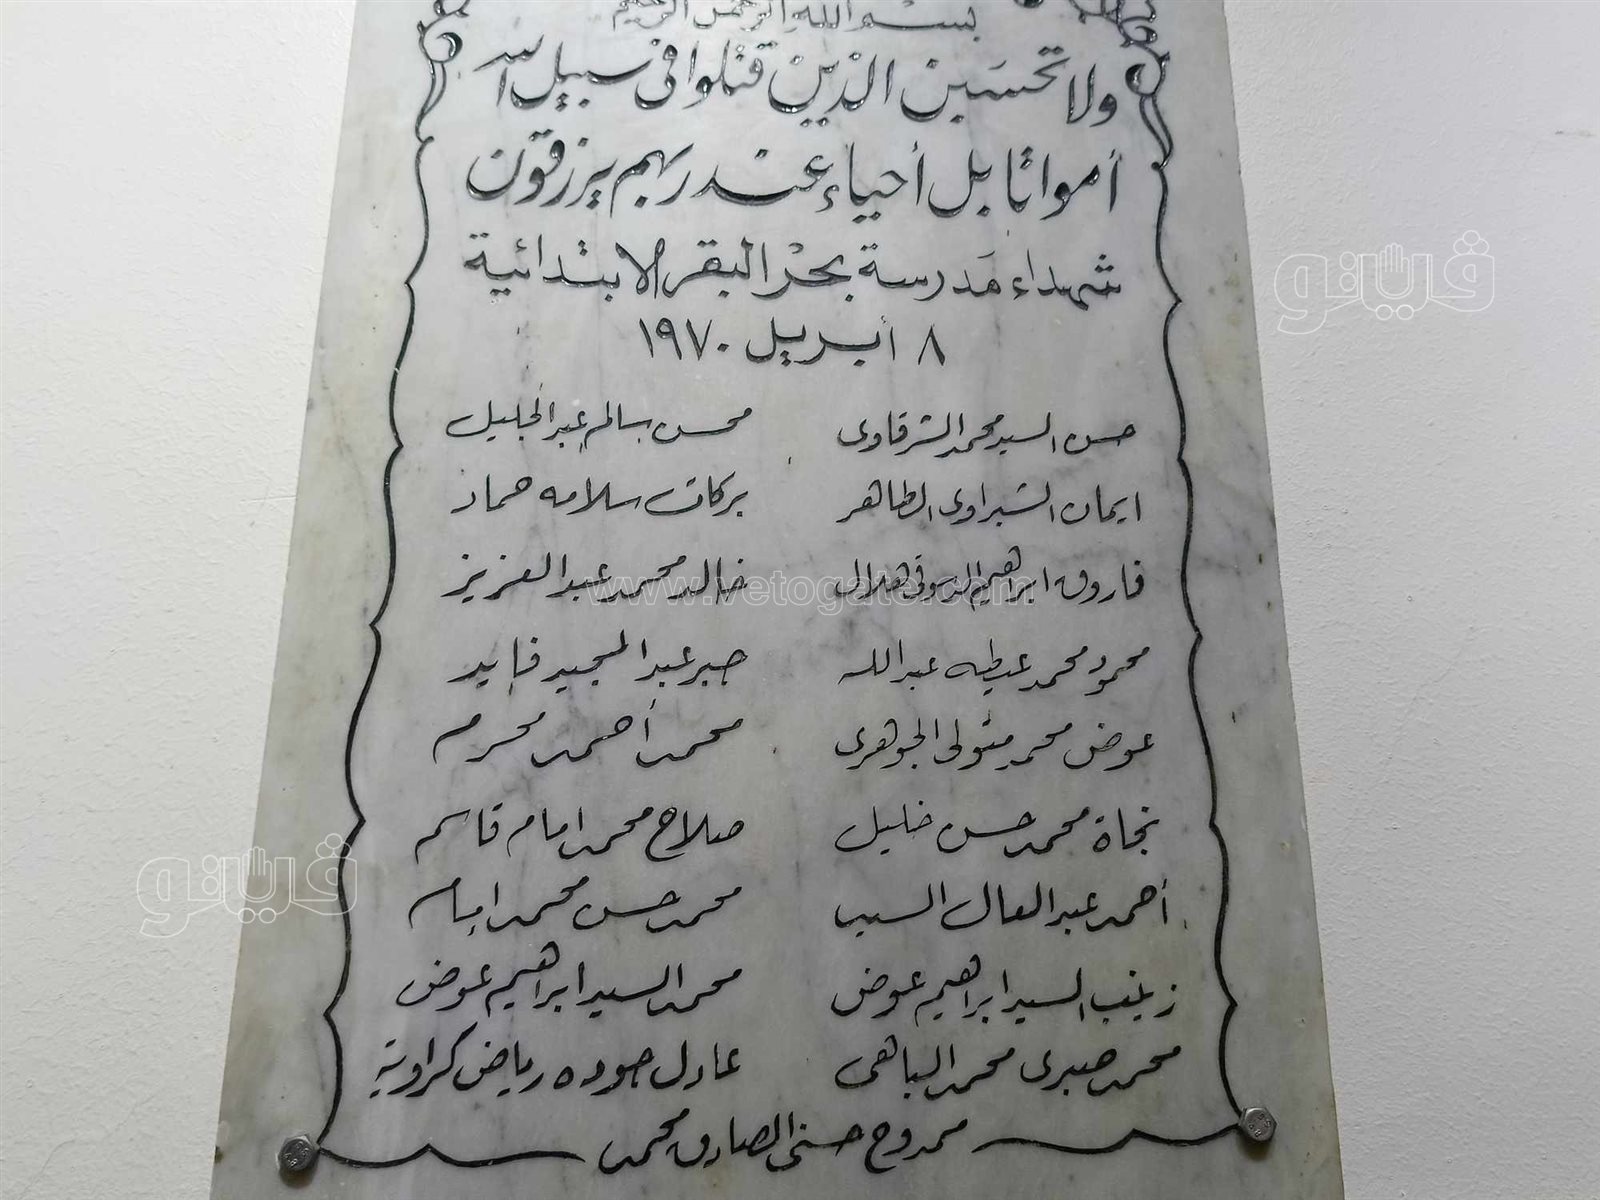 بسم الله الرحمن الرحيم
ولا تحسبن الذين قتلوا في سبيل الله
أمواتا بل أحياء عند ربهم يرزقون
شهداء مدرسة بحر البقر الابتدائية
٨ أبريل ١٩٧٠
حسن السيد محمد الشرقاوى محسن سالم عبد الجليل
ايمان الشبراوى الطاهر بركات سلامه حماد
فاروق ابراهيم الدسوقى هلال خالد محمد عبد العزيز
محمود محمد عطيه عبد الله جبر عبد المجيد فايد
عوض محمد متولى الجوهرى محمد أحمد محرم
نجاة محمد حسن خليل صلاح محمد امام قاسم
أحمد عبد العال السيد محمد حسن محمد امام
زينب السيد ابراهيم عوض محمد السيد ابراهيم عوض
محمد صبرى محمد الباهى عادل جوده رياض كراوية
ممدوح حسنى الصادق محمد
www.vetogate.com
فيتو
فيتو